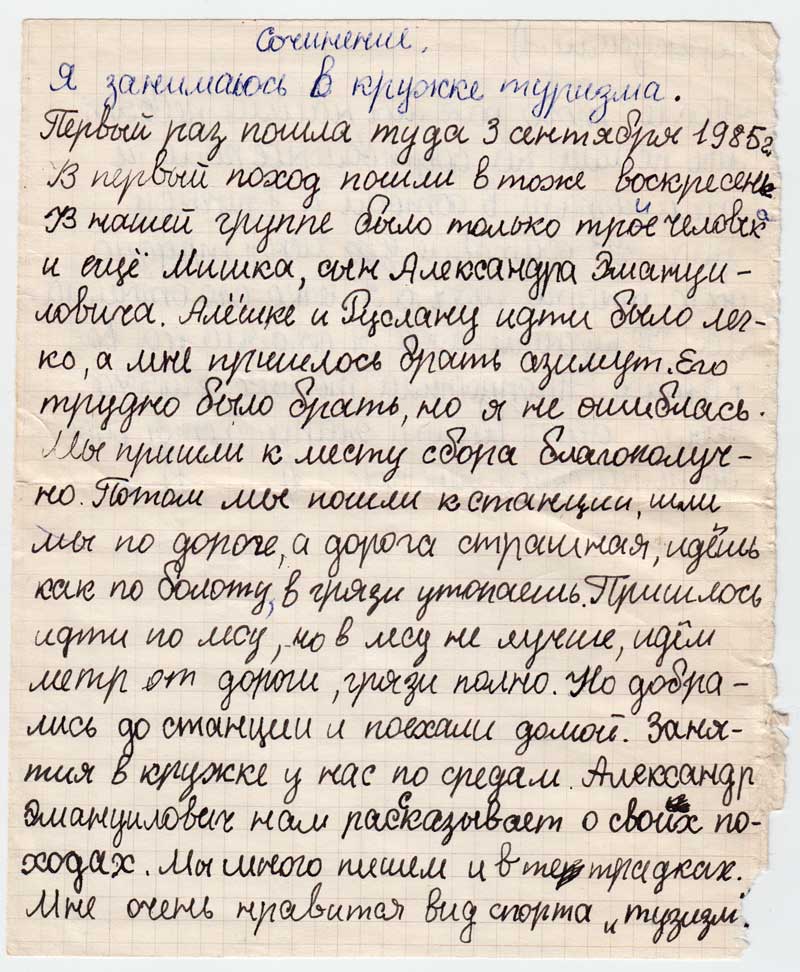 Сочинение.
Я занимаюсь в кружке туризма.
Первый раз пошла туда 3 сентября 1985г.
В первый поход пошли в тоже воскресенье
В нашей группе было только трое человека
и ещё Мишка, сын Александра Эмануи-
ловича. Алёшке и Руслану идти было лег-
ко, а мне пришлось брать азимут. Его
трудно было брать, но я не ошиблась.
Мы пришли к месту сбора благополуч-
но. Потом мы пошли к станции, шли
мы по дороге, а дорога страшная, идёшь
как по болоту, в грязи утопаешь. Пришлось
идти по лесу, но в лесу не лучше, идём
метр от дороги, грязи полно. Но добра-
лись до станции и поехали домой. Заня-
тия в кружке у нас по средам. Александр
Эмануилович нам рассказывает о своих по-
ходах. Мы много пишем и в тетрадках.
Мне очень нравится вид спорта „тузизм".